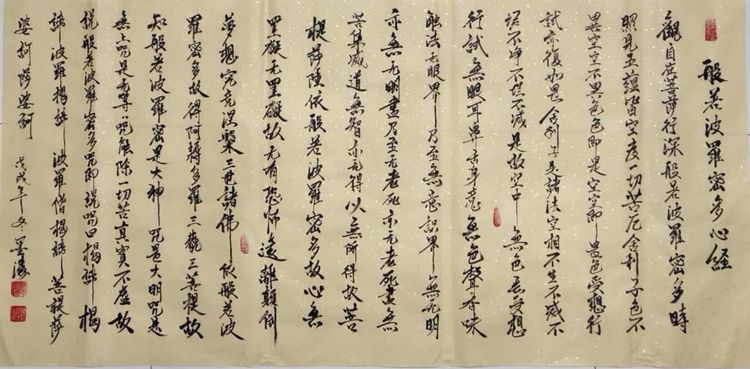 般若波羅密多心經
觀自在菩薩行深般若波羅密多時
照見五蘊皆空度一切苦厄舍利子色不
異空空不異色色即是空空即是色受想行
試亦復如是舍利子是諸法空相不生不滅不
垢不淨不增不減是故空中無色无受想
行試無眼耳鼻舌身意無色聲香味
觸法无眼界乃至無意識界無无明
亦無无明盡乃至无老死亦无老死盡無
苦集滅道無智亦无得以無所得故菩
提薩陲依般若波羅密多故心無
罣礙无罣礙故无有恐怖遠離顛倒
夢想究竟涅槃三世諸佛依般若波
羅密多故得阿耨多羅三藐三菩提故
知般若波羅密是大神咒是大明咒是
無上咒是无等咒能除一切苦真實不虛故
說般若波羅密多咒即說咒曰揭諦揭
諦波羅揭諦波羅僧揭諦菩提薩
婆訶薩婆訶
戊戌年冬